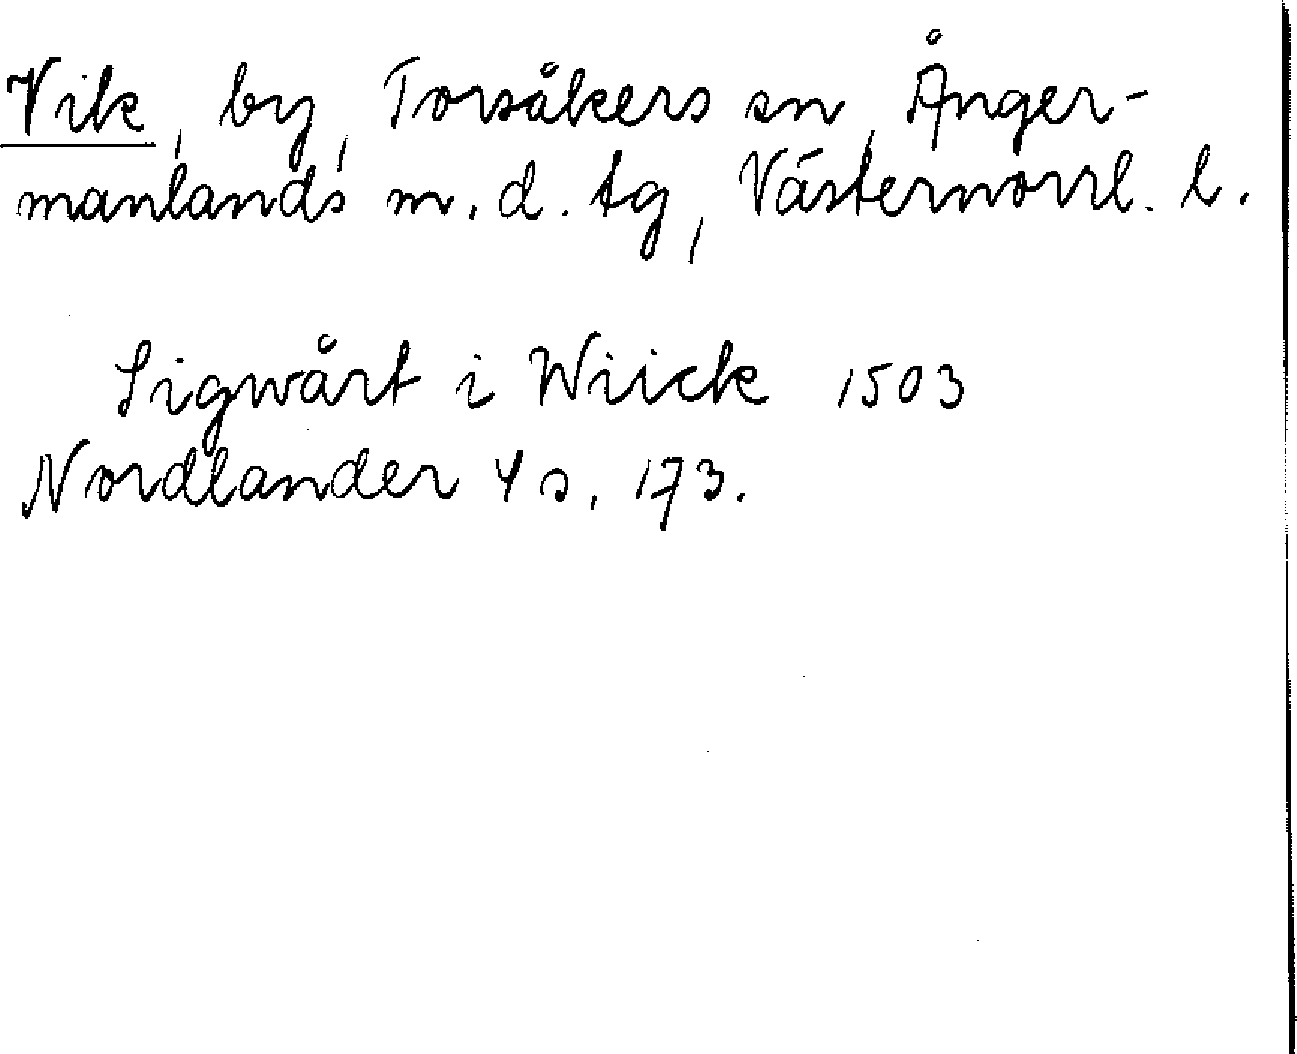 Vik, by, Torsåkers sn, Ånger-
manlands m. d. tg, Västernorrl. l.
Sigwårt i Wiick 1503
Nordlander 4 s. 173.